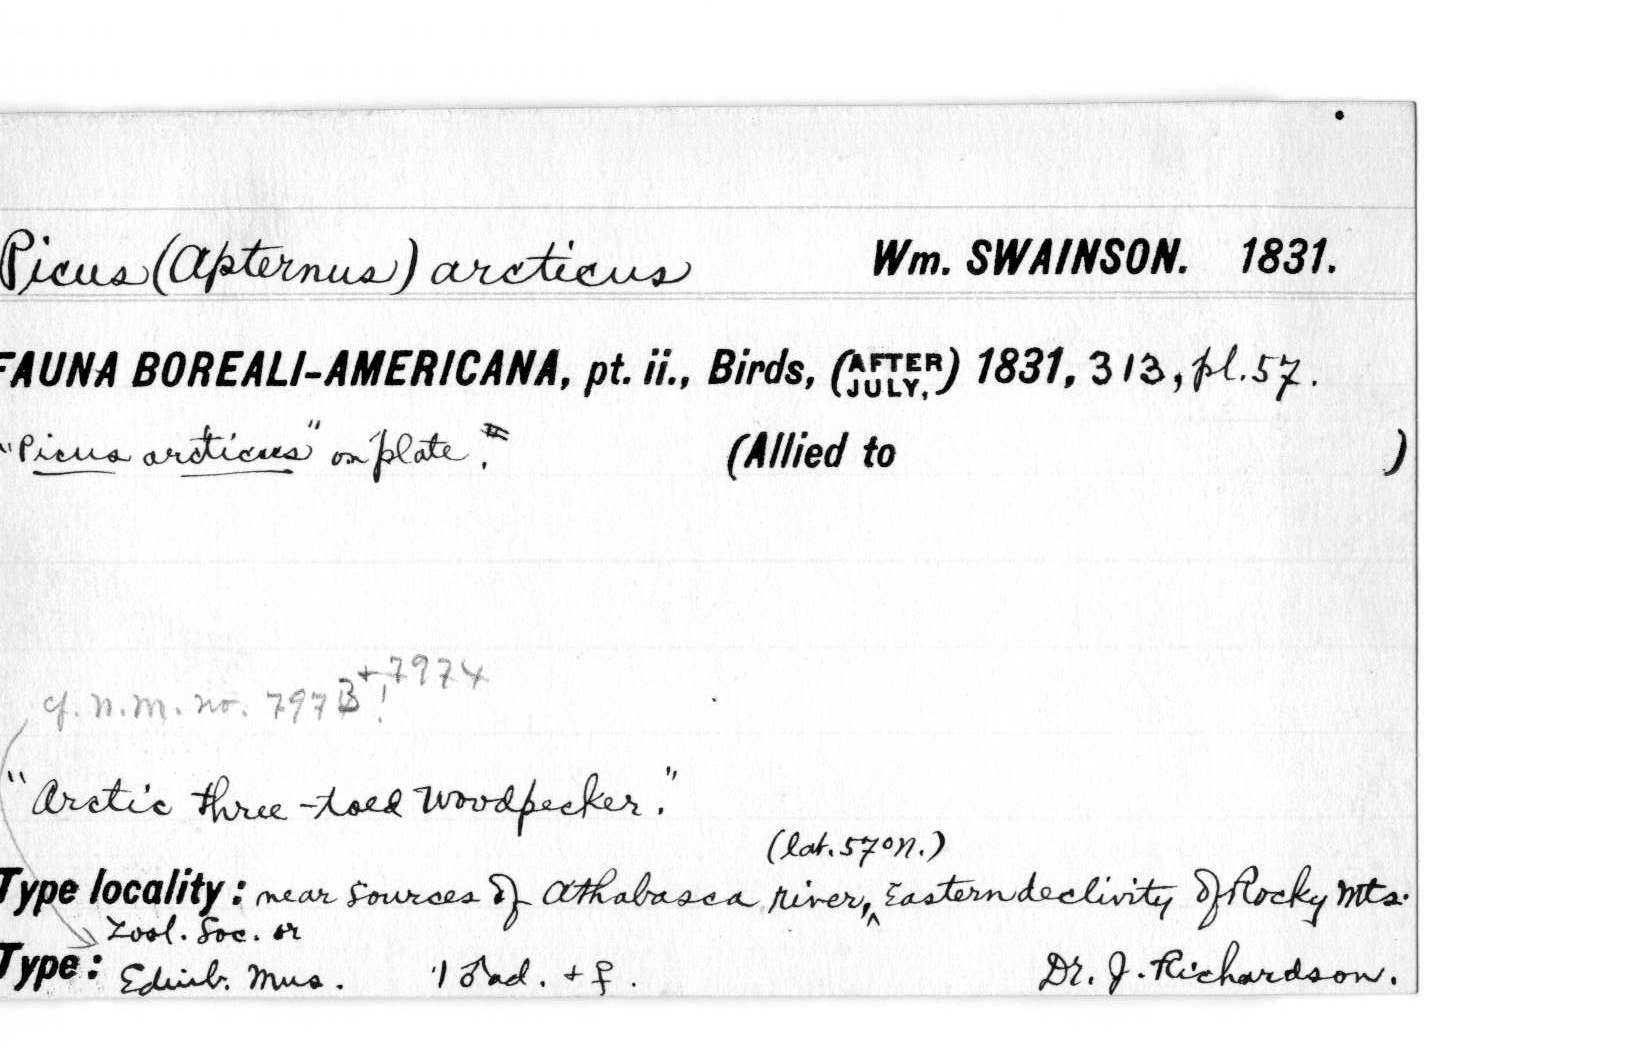 Picus (Apternus) arcticus Wm. SWAINSON. 1831.
FAUNA BOREALI-AMERICANA, pt. ii., Birds, (AFTER JULY,) 1831, 313, pl. 57.
"Picus arcticus" on plate. (Allied to )
cf. N.M. no. 7973! + 7974
"Arctic three-toed Woodpecker."
(lat. 57° N.)
Type locality: near sources of Athabasca river, ^ Eastern declivity of Rocky Mts.
Zool. Soc. or
Type: Edinb. Mus. 1 ♂ ad. + ♀. Dr. J. Richardson.